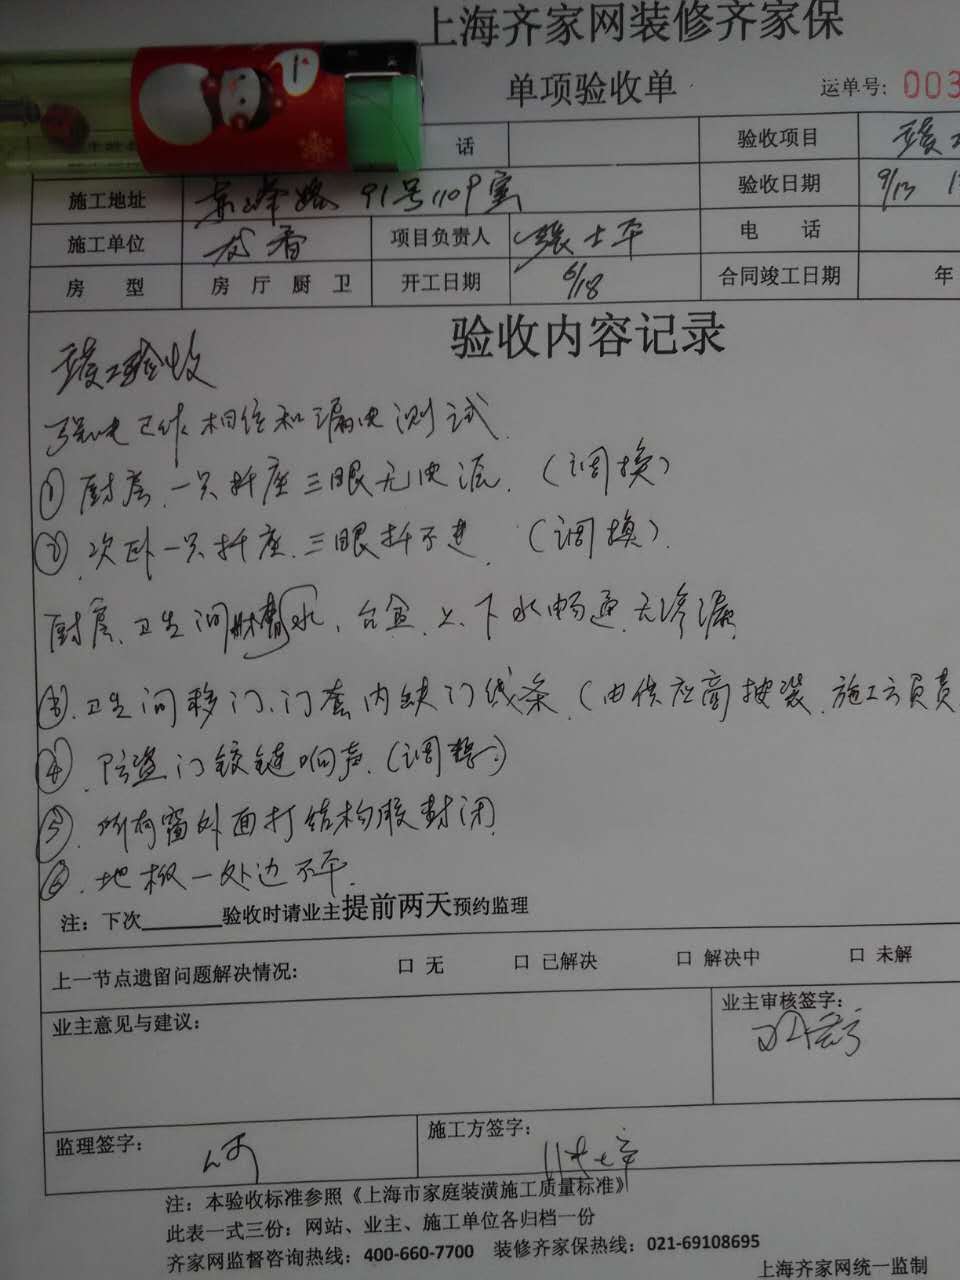 上海齐家网装修齐家保
单项验收单
运单号: 003
话 验收项目 竣
施工地址 91号1109室 验收日期 9/13
施工单位 项目负责人 张士平 电 话
房 型 房 厅 厨 卫 开工日期 6/18 合同竣工日期 年
验收内容记录
竣工验收
强电已作相位和漏电测试
① 厨房,一只插座三眼无电源.(调换)
② 次卧一只插座.三眼插不进.(调换)
厨房、卫生间 水,台盆,上、下水畅通无渗漏
③ 卫生间移门、门套内缺门线条(由供应商按装.施工方负责
④ 防盗门铰链响声.(调整)
⑤ 所有窗外面打结构胶封闭
⑥ 地板一处边不平.
注: 下次________验收时请业主提前两天预约监理
上一节点遗留问题解决情况: □ 无 □ 已解决 □ 解决中 □ 未解
业主意见与建议: 业主审核签字:
监理签字: 施工方签字: 张士平
注: 本验收标准参照《上海市家庭装潢施工质量标准》
此表一式三份: 网站、业主、施工单位各归档一份
齐家网监督咨询热线: 400-660-7700 装修齐家保热线: 021-69108695
上海齐家网统一监制